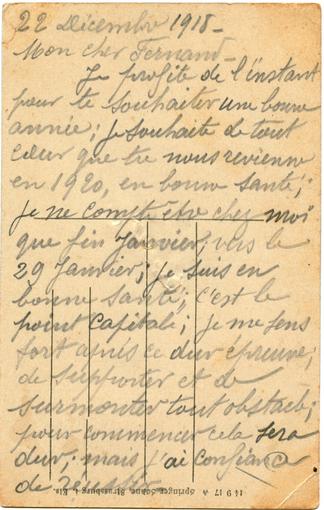 22 Décembre 1918 -
Mon cher Fernand -
Je profite de l'instant
pour te souhaiter une bonne
année; je souhaite de tout
cœur que tu nous revienne
en 1920, en bonne santé;
je ne compte être chez moi
que fin Janvier; vers le
29 Janvier; je suis en
bonne santé; c'est le
point capitale; je me sens
fort après ce dur épreuve;
de supporter et de
surmonter tout obstacle;
pour commencer cela sera
dur; mais j'ai confiance
de réussir
14 9 17 A Springer Söhne, Strassburg i. Els.